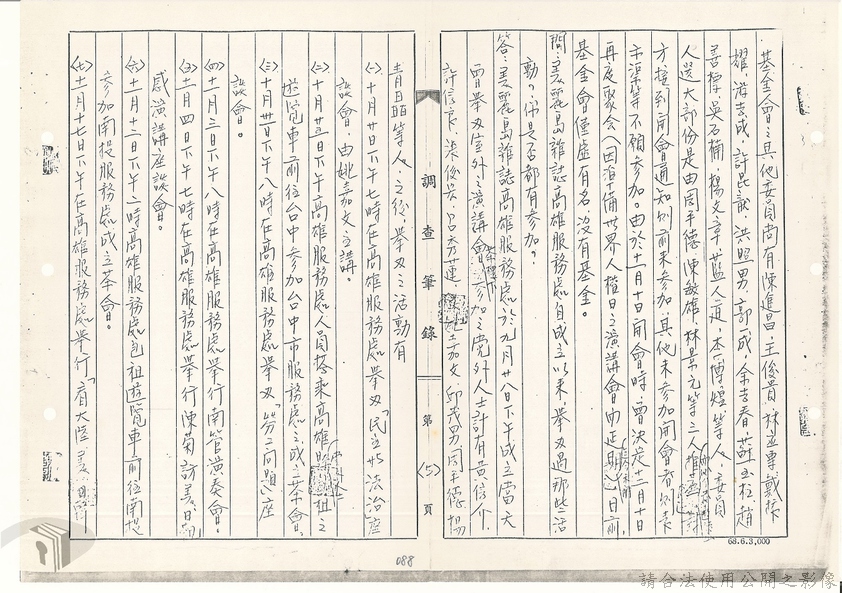 基金會之其他委員尚有陳進昌、王俊貴、林並單、戴振
耀、游志成、許昆龍、洪照男、郭一成、余吉春、蘇玉柱、趙
善標、吳石楠、楊文章、藍人通、李博煌等人,委員
人選大部份是由周平德、陳敏雄、林景元等三人推
方接到開會通知則前來參加,其他未參加開會者則表
不願參加。由於十一月十日開會時,曾決定十二月十日
再度聚會(因治十備世界人權日之演講會而延期)迄目前
基金會僅虛有名,沒有基金。
問:美麗島雜誌高雄服務處自成立以來,舉办過那些活
動?你是否都有參加?
答:美麗島雜誌高雄服務處於九月廿八日下午成立當天
曾舉办室外之演講會,參加之党外人士計有黃信介、
許信良、張俊宏、呂秀蓮、姚嘉文、邱茂男、周平德、楊
青矗等人,之後舉办之活動有
㈠十月廿日下午七時在高雄服務處舉办「民主與法治」座
談會,由姚嘉文主講。
㈡十月廿五日下午高雄服務處人員搭乘高雄租之
遊覽車前往台中參加台中市服務處之成立茶會。
㈢十月卅日下午八時在高雄服務處舉办「勞工問題」座
談會。
㈣十一月三日下午八時在高雄服務處舉行南管演奏會。
㈤十一月四日下午七時在高雄服務處舉行陳菊訪美日觀
感演講座談會。
㈥十一月十二日下午二時高雄服務處包租遊覽車前往南投
參加南投服務處成立茶會。
㈦十一月十七日下午在高雄服務處舉行「省大陸
調查筆錄
第〈5〉頁
68.6.3,000
088
請合法使用公開之影像